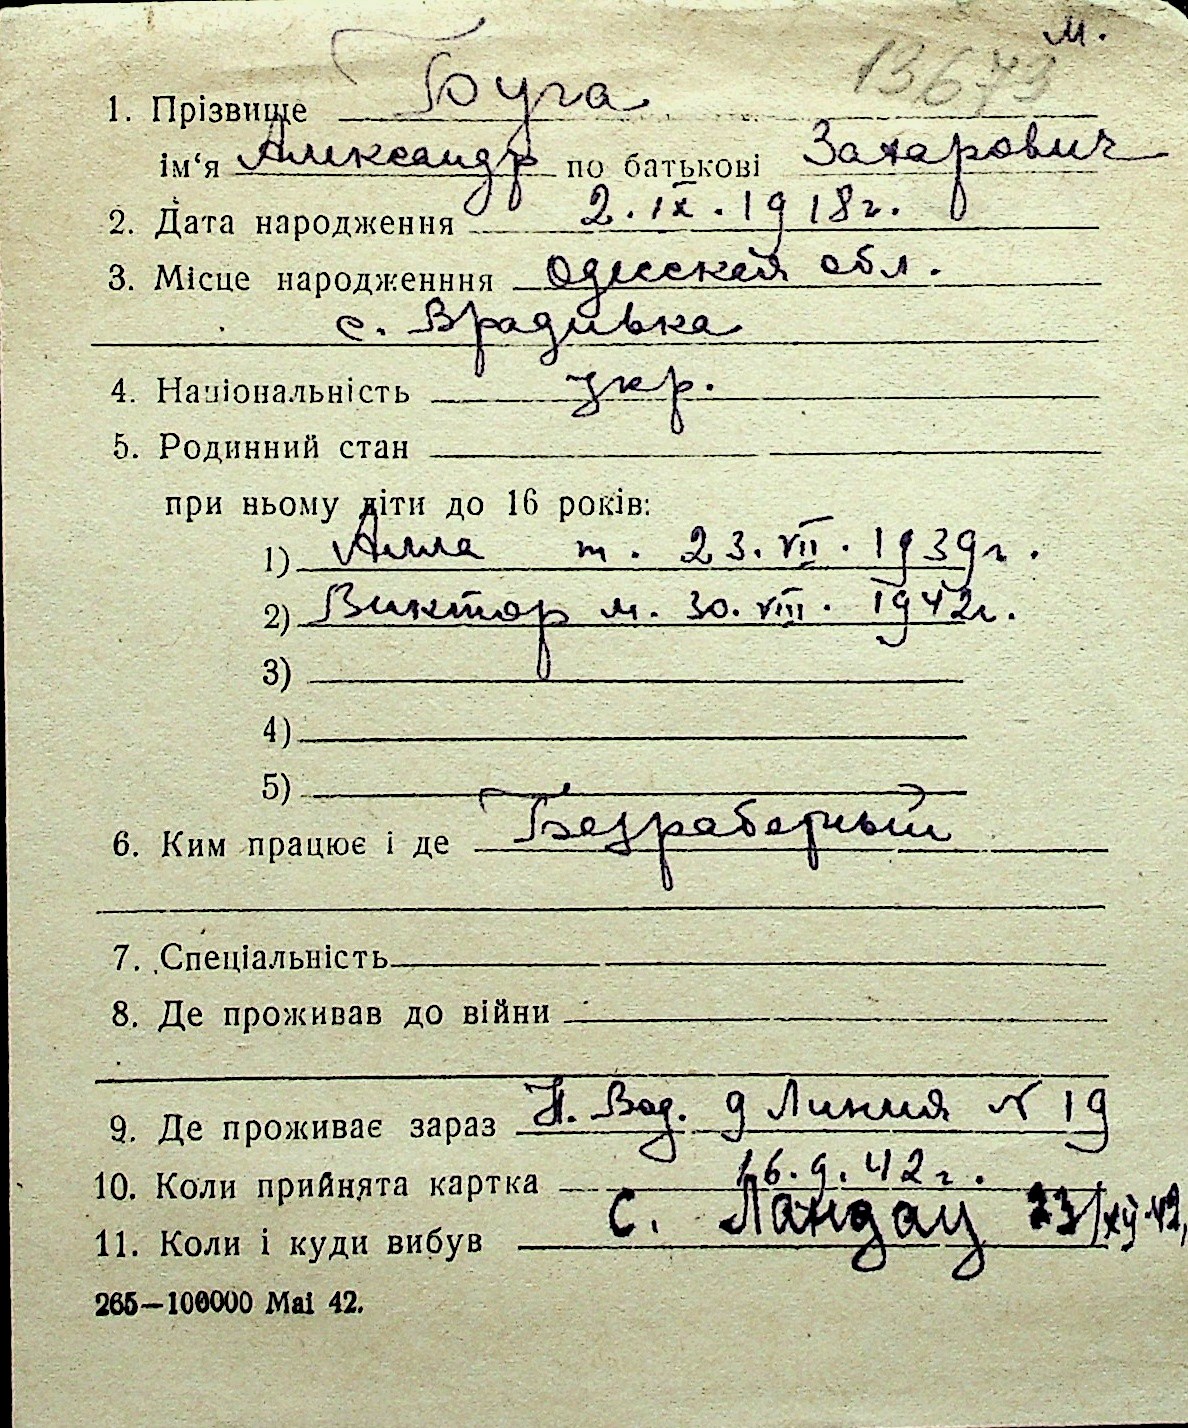 м.
13673
1. Прізвище Буга
ім‘я Александр по батькові Захарович
2. Дата народження 2.IX.1918г.
3. Місце народженння Одесской обл.
с. Врадивка
4. Національність укр.
5. Родинний стан
при ньому діти до 16 років:
1) Алла ж. 23.VII.1939г.
2) Виктор м. 30.VIII.1942г.
3)
4)
5)
6. Ким працює і де Безработный
7. Спеціальність
8. Де проживав до війни
9. Де проживає зараз Н. Вод. 9 Линия № 19
10. Коли прийнята картка 16.9.42г.
11. Коли і куди вибув с. Ландау 23/XII.42,
265—100000 Mai 42.